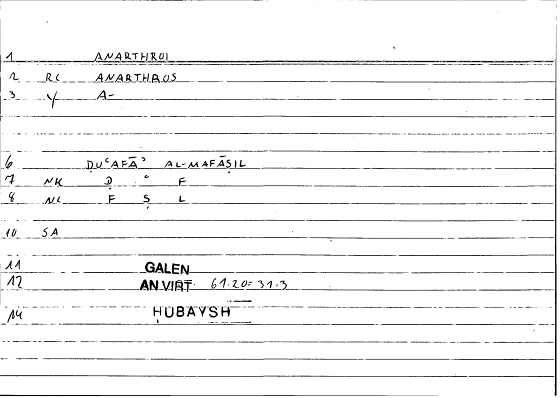 1 ANARTHROI
2 RC ANARTHROS
3 Y A-
6 ḌUʿAFĀʾ AL-MAFĀṢIL
7 NK Ḍ ʿ F
8 NL F Ṣ L
10 SA
11 GALEN
12 AN VIRT 61.20=31.3
14 ḤUBAYSH